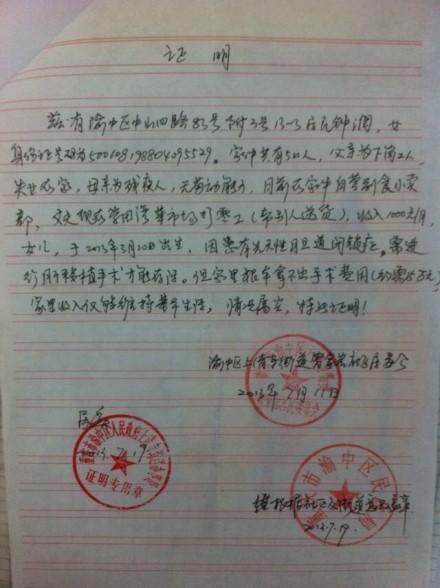 证 明
兹有渝中区中山四路83号附3号13-3居民钟润，女
身份证号码为500108198804095529。家中共有5口人，父亲为下岗工人，
失业在家，母亲为残疾人，无劳动能力，目前在家中自营副食小卖
部，丈夫现在菅园湾菜市场打零工（帮别人送货），收入1000元/月，
女儿，于2013年3月20日出生，因患有先天性胆道闭锁症。需进
行肝移植手术才能存活。但家里根本拿不出手术费用（约需15万元），
家里收入仅够维持基本生活，情况属实，特此证明！
渝中区上清寺街道 社区居委会
2013年7月17日
属实
13.7.19
证明专用章
重庆市渝中区民政局
根据社区及街道意见盖章
2013.7.19.